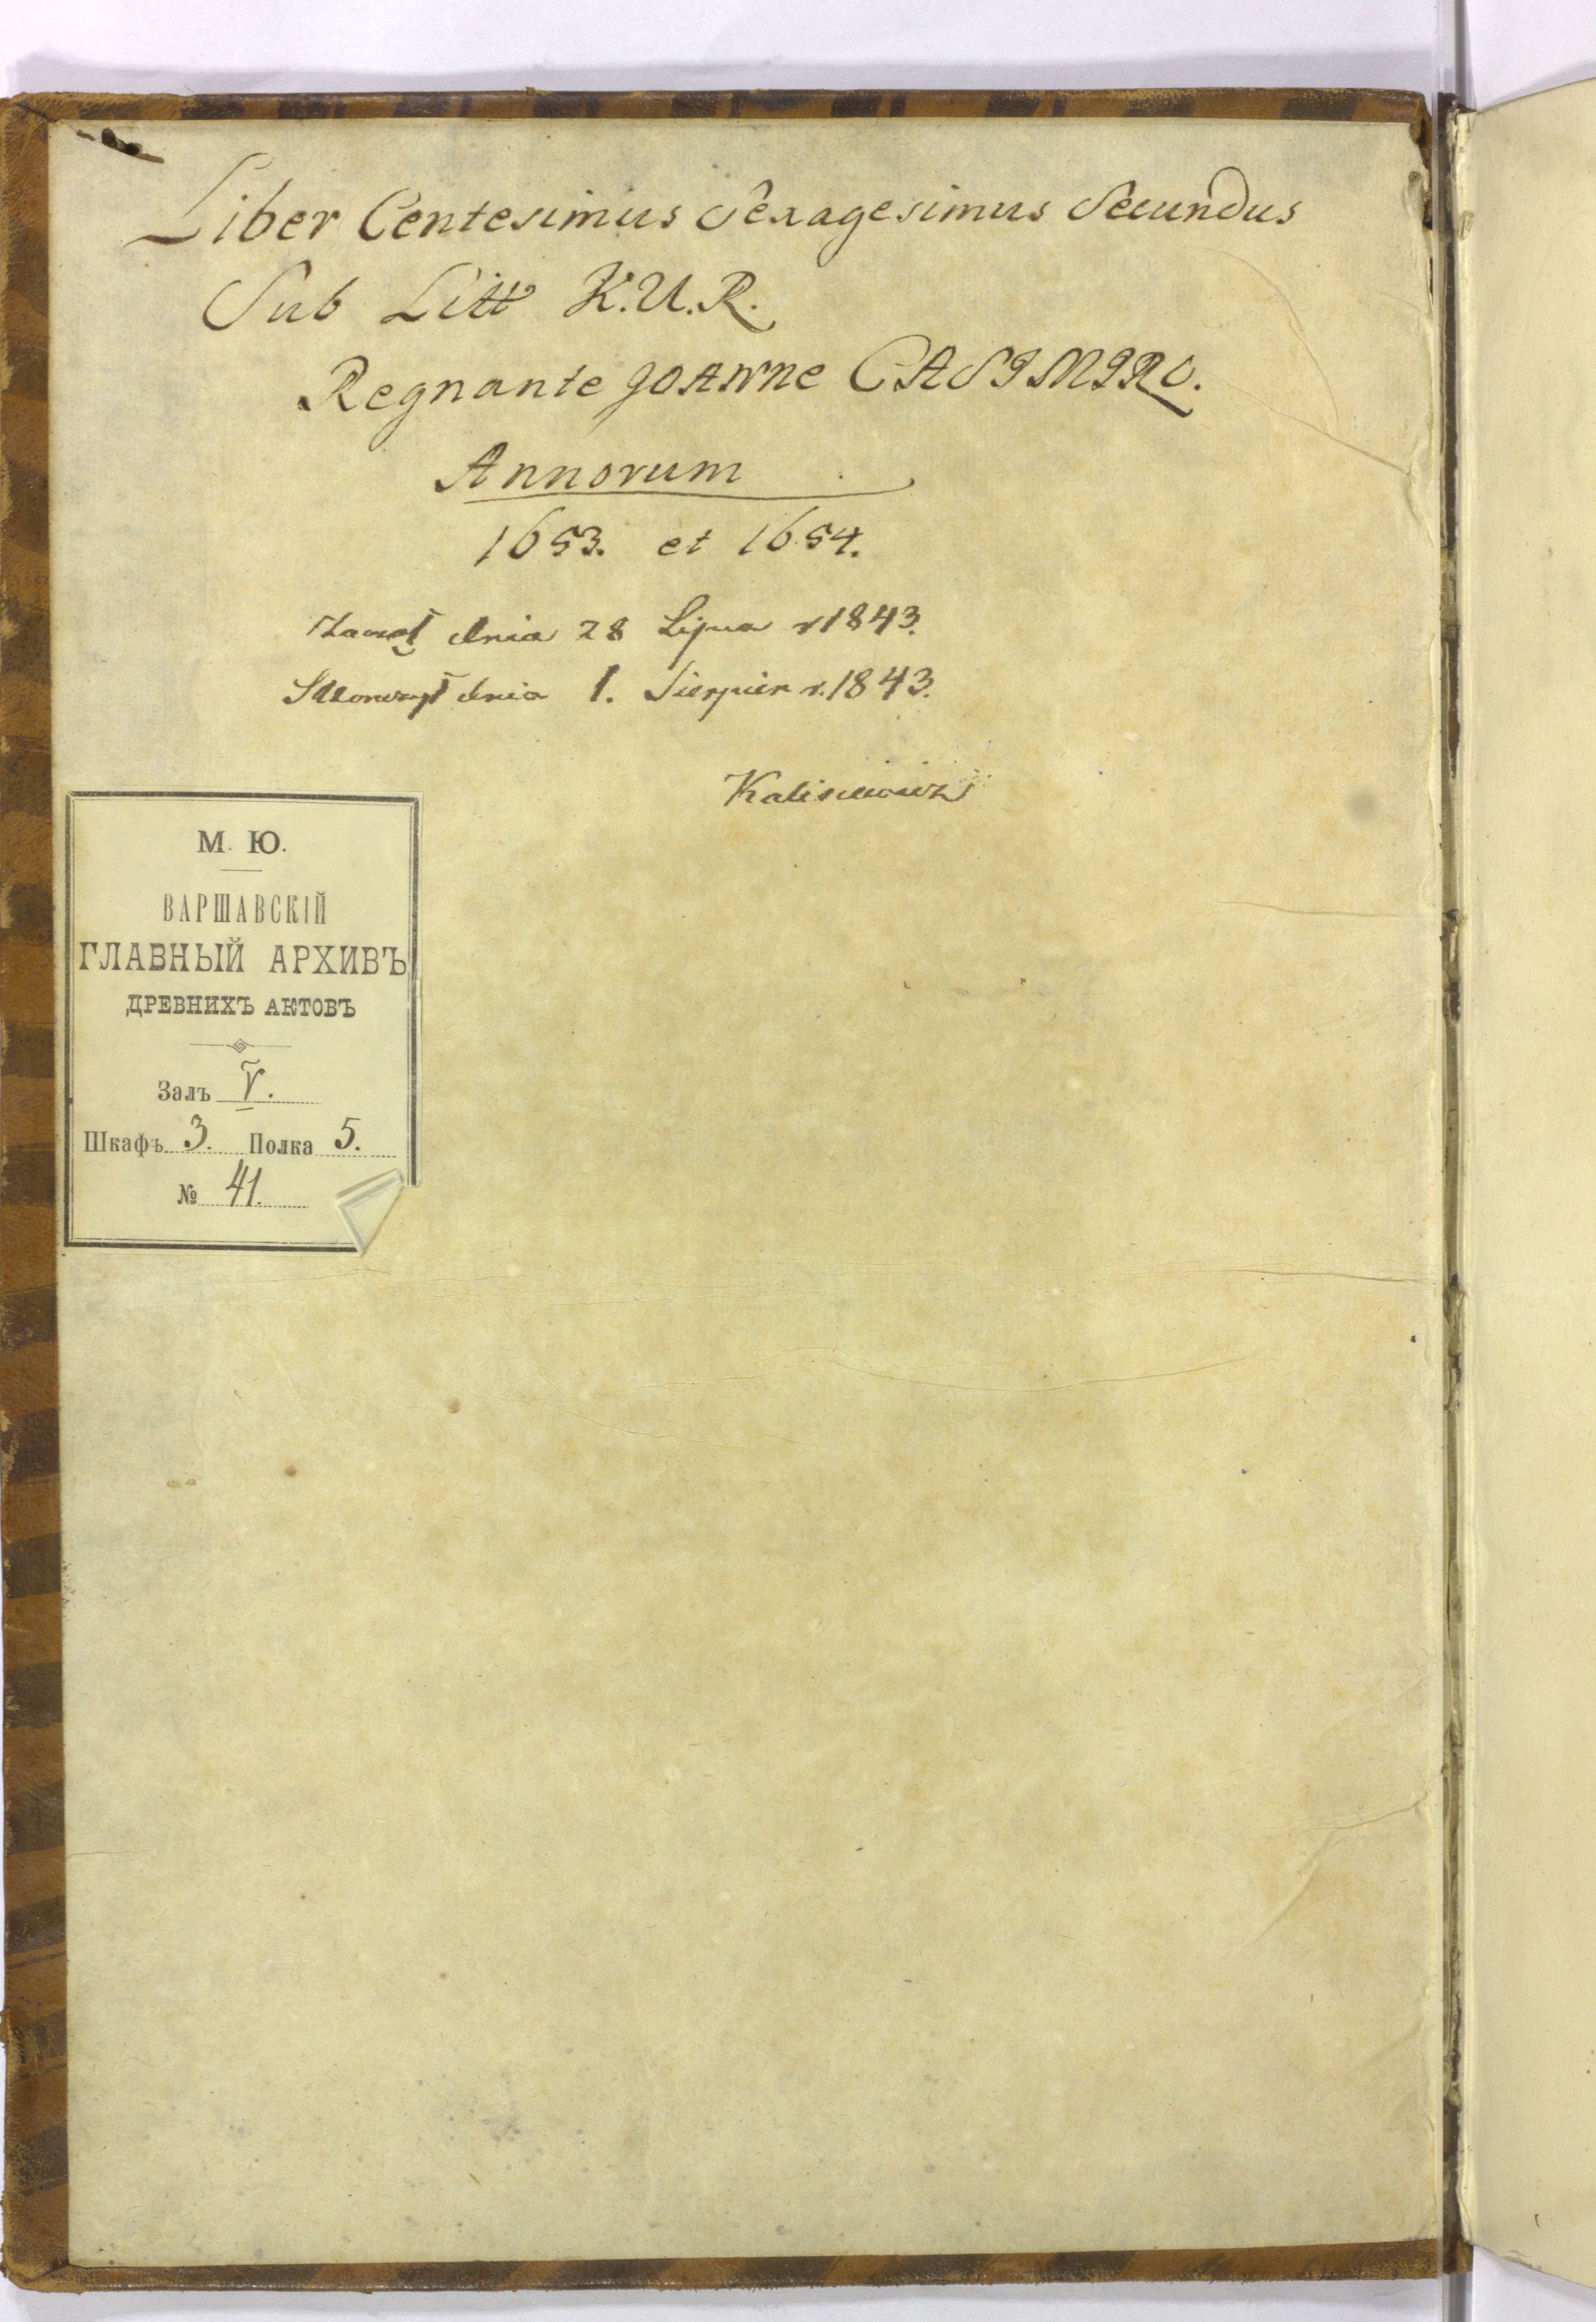 Liber Centesimus Sexagesimus Secundus
Sub Litt K.U.R.
Regnante JOANNe CASIMIRO.
Annorum
1653. et 1654.
Zaczął dnia 28 Lipca r 1843.
Skończył dnia 1. Sierpnia r. 1843.
М. Ю.
ВАРШАВСКІЙ
ГЛАВНЫЙ АРХИВЪ
ДРЕВНИХЪ АКТОВЪ
Залъ V.
Шкафъ 3. Полка 5.
№ 41.